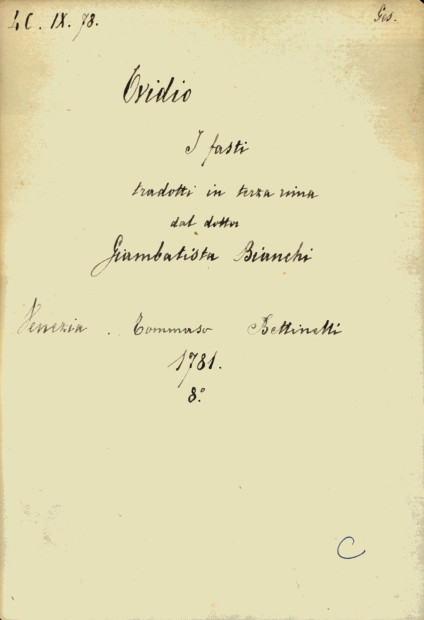 4C. IX. 78. Ges.
Ovidio
I fasti
tradotti in terza rima
dal dottor
Giambatista Bianchi
Venezia. Tommaso Bettinelli
1781.
8.º
C